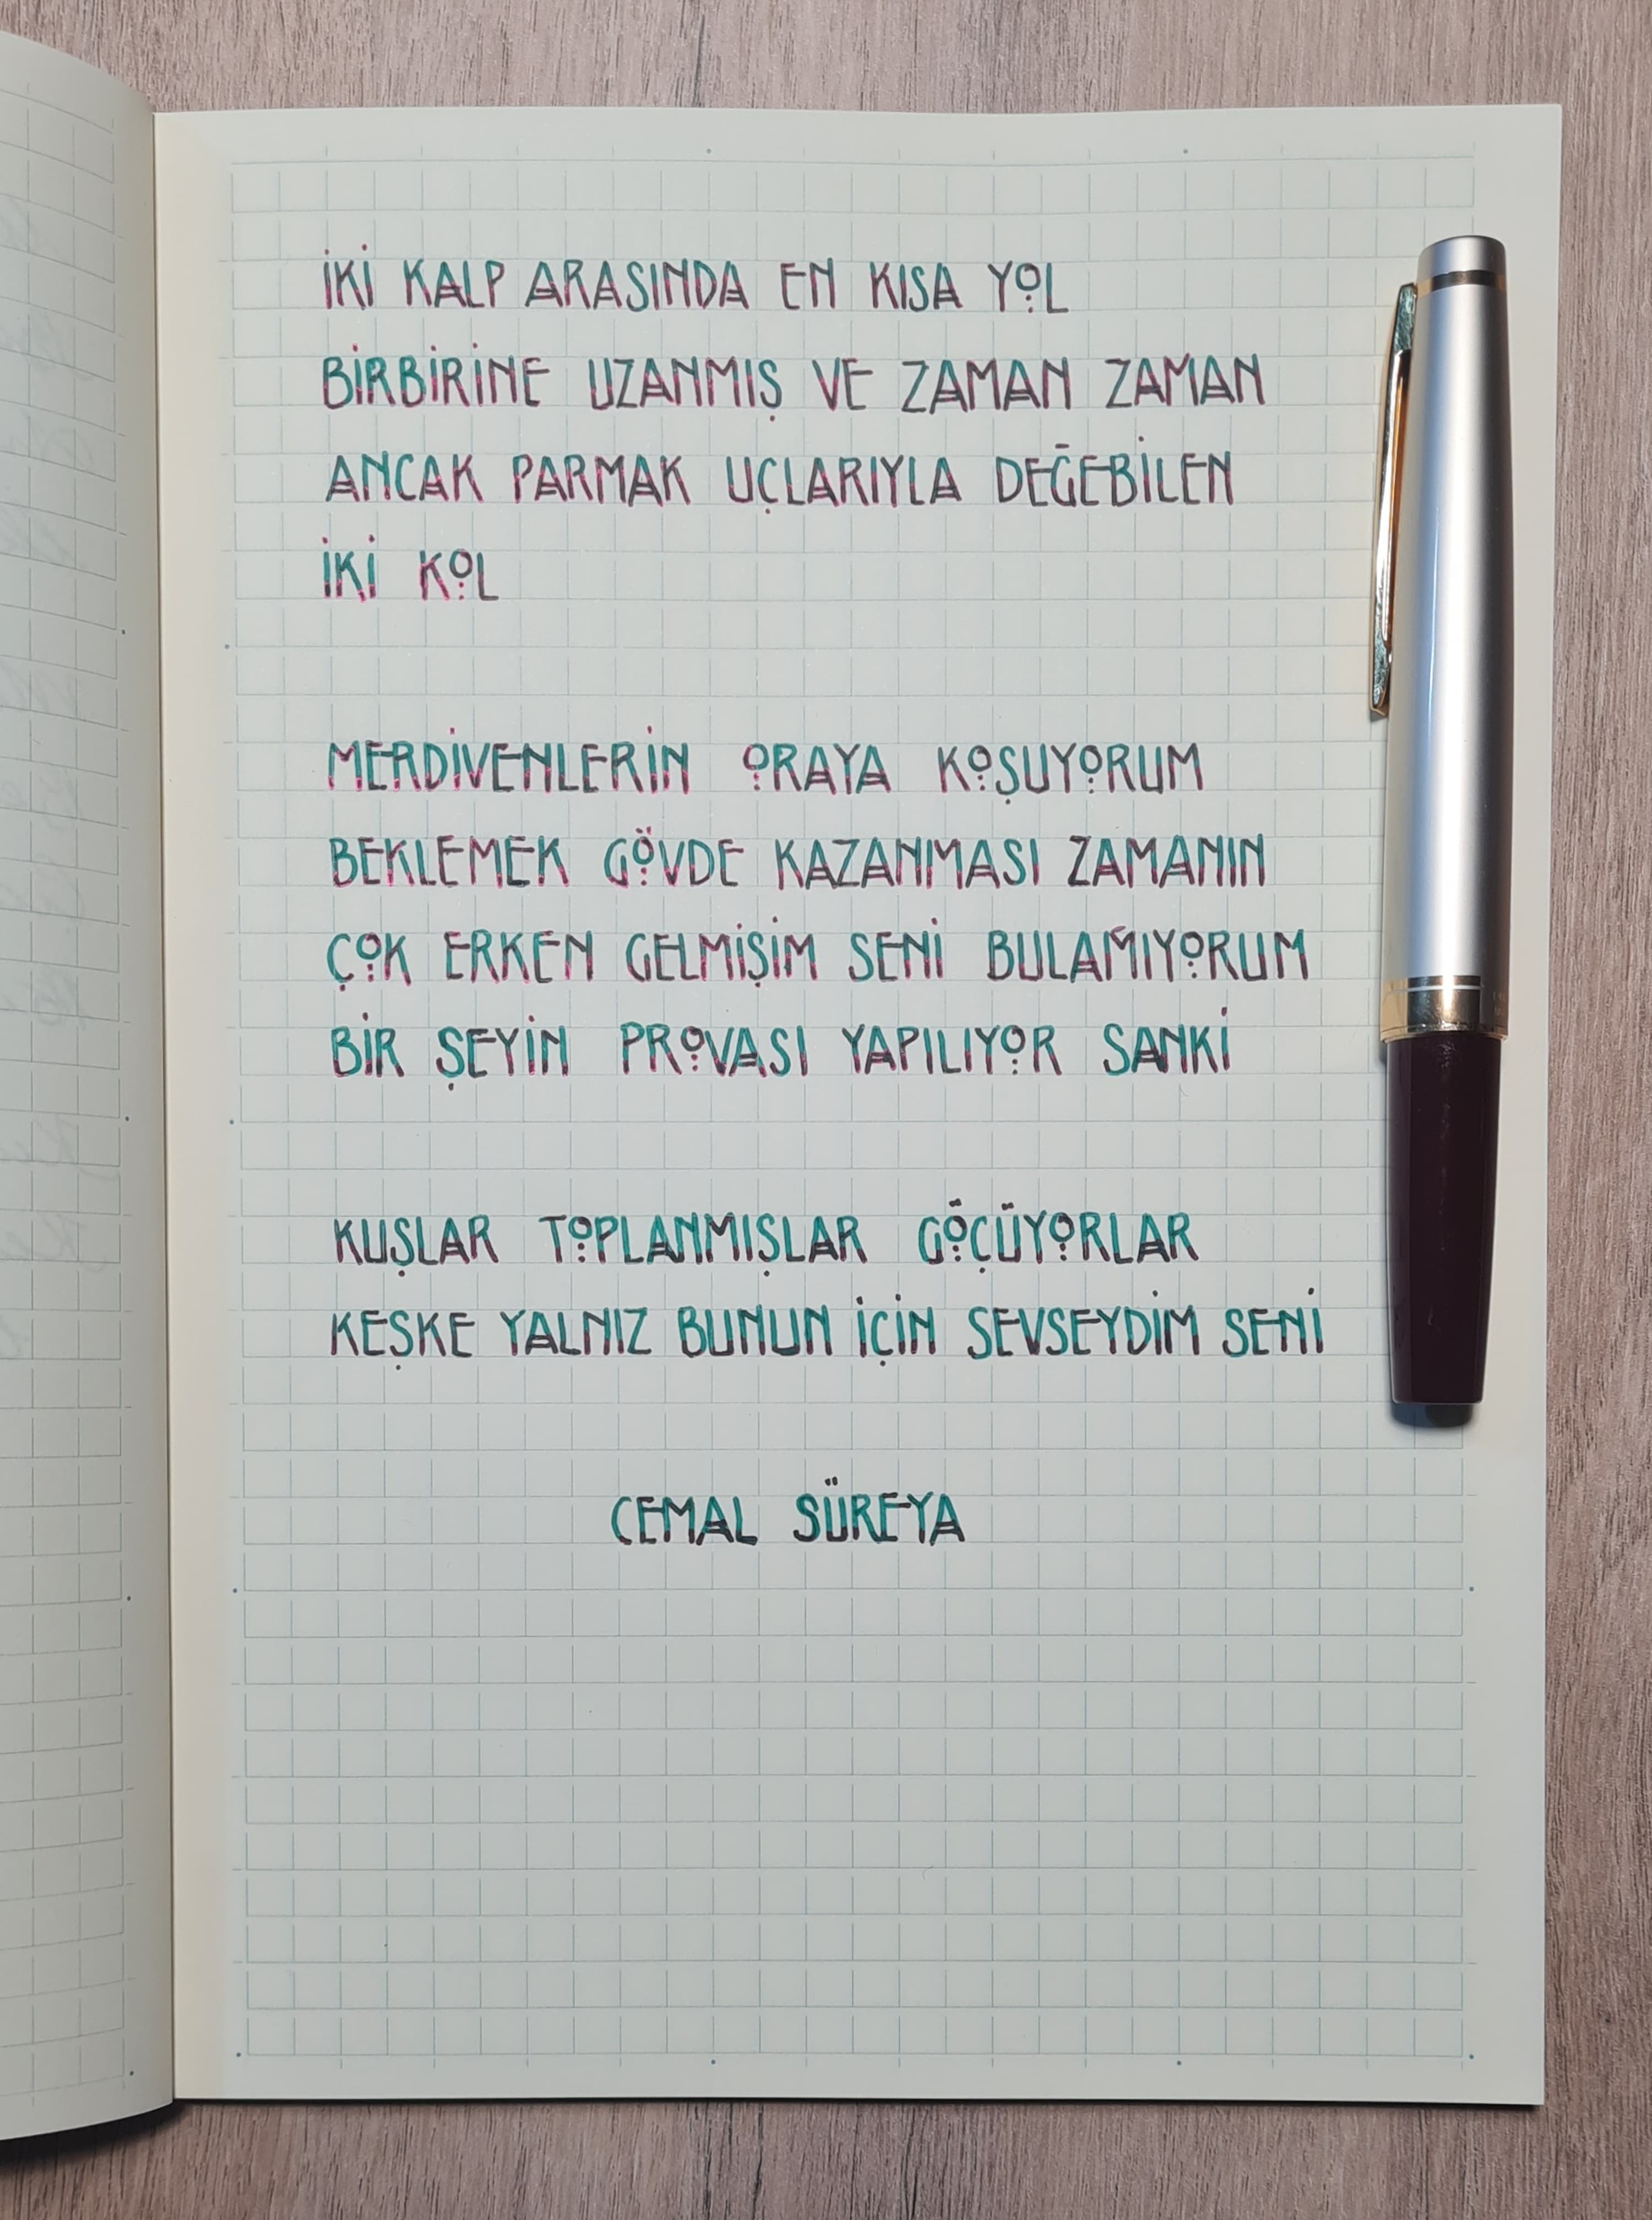 İKİ KALP ARASINDA EN KISA YOL
BİRBİRİNE UZANMIŞ VE ZAMAN ZAMAN
ANCAK PARMAK UÇLARIYLA DEĞEBİLEN
İKİ KOL
MERDİVENLERİN ORAYA KOŞUYORUM
BEKLEMEK GÖVDE KAZANMASI ZAMANIN
ÇOK ERKEN GELMİŞİM SENİ BULAMIYORUM
BİR ŞEYİN PROVASI YAPILIYOR SANKİ
KUŞLAR TOPLANMIŞLAR GÖÇÜYORLAR
KEŞKE YALNIZ BUNUN İÇİN SEVSEYDİM SENİ
CEMAL SÜREYA